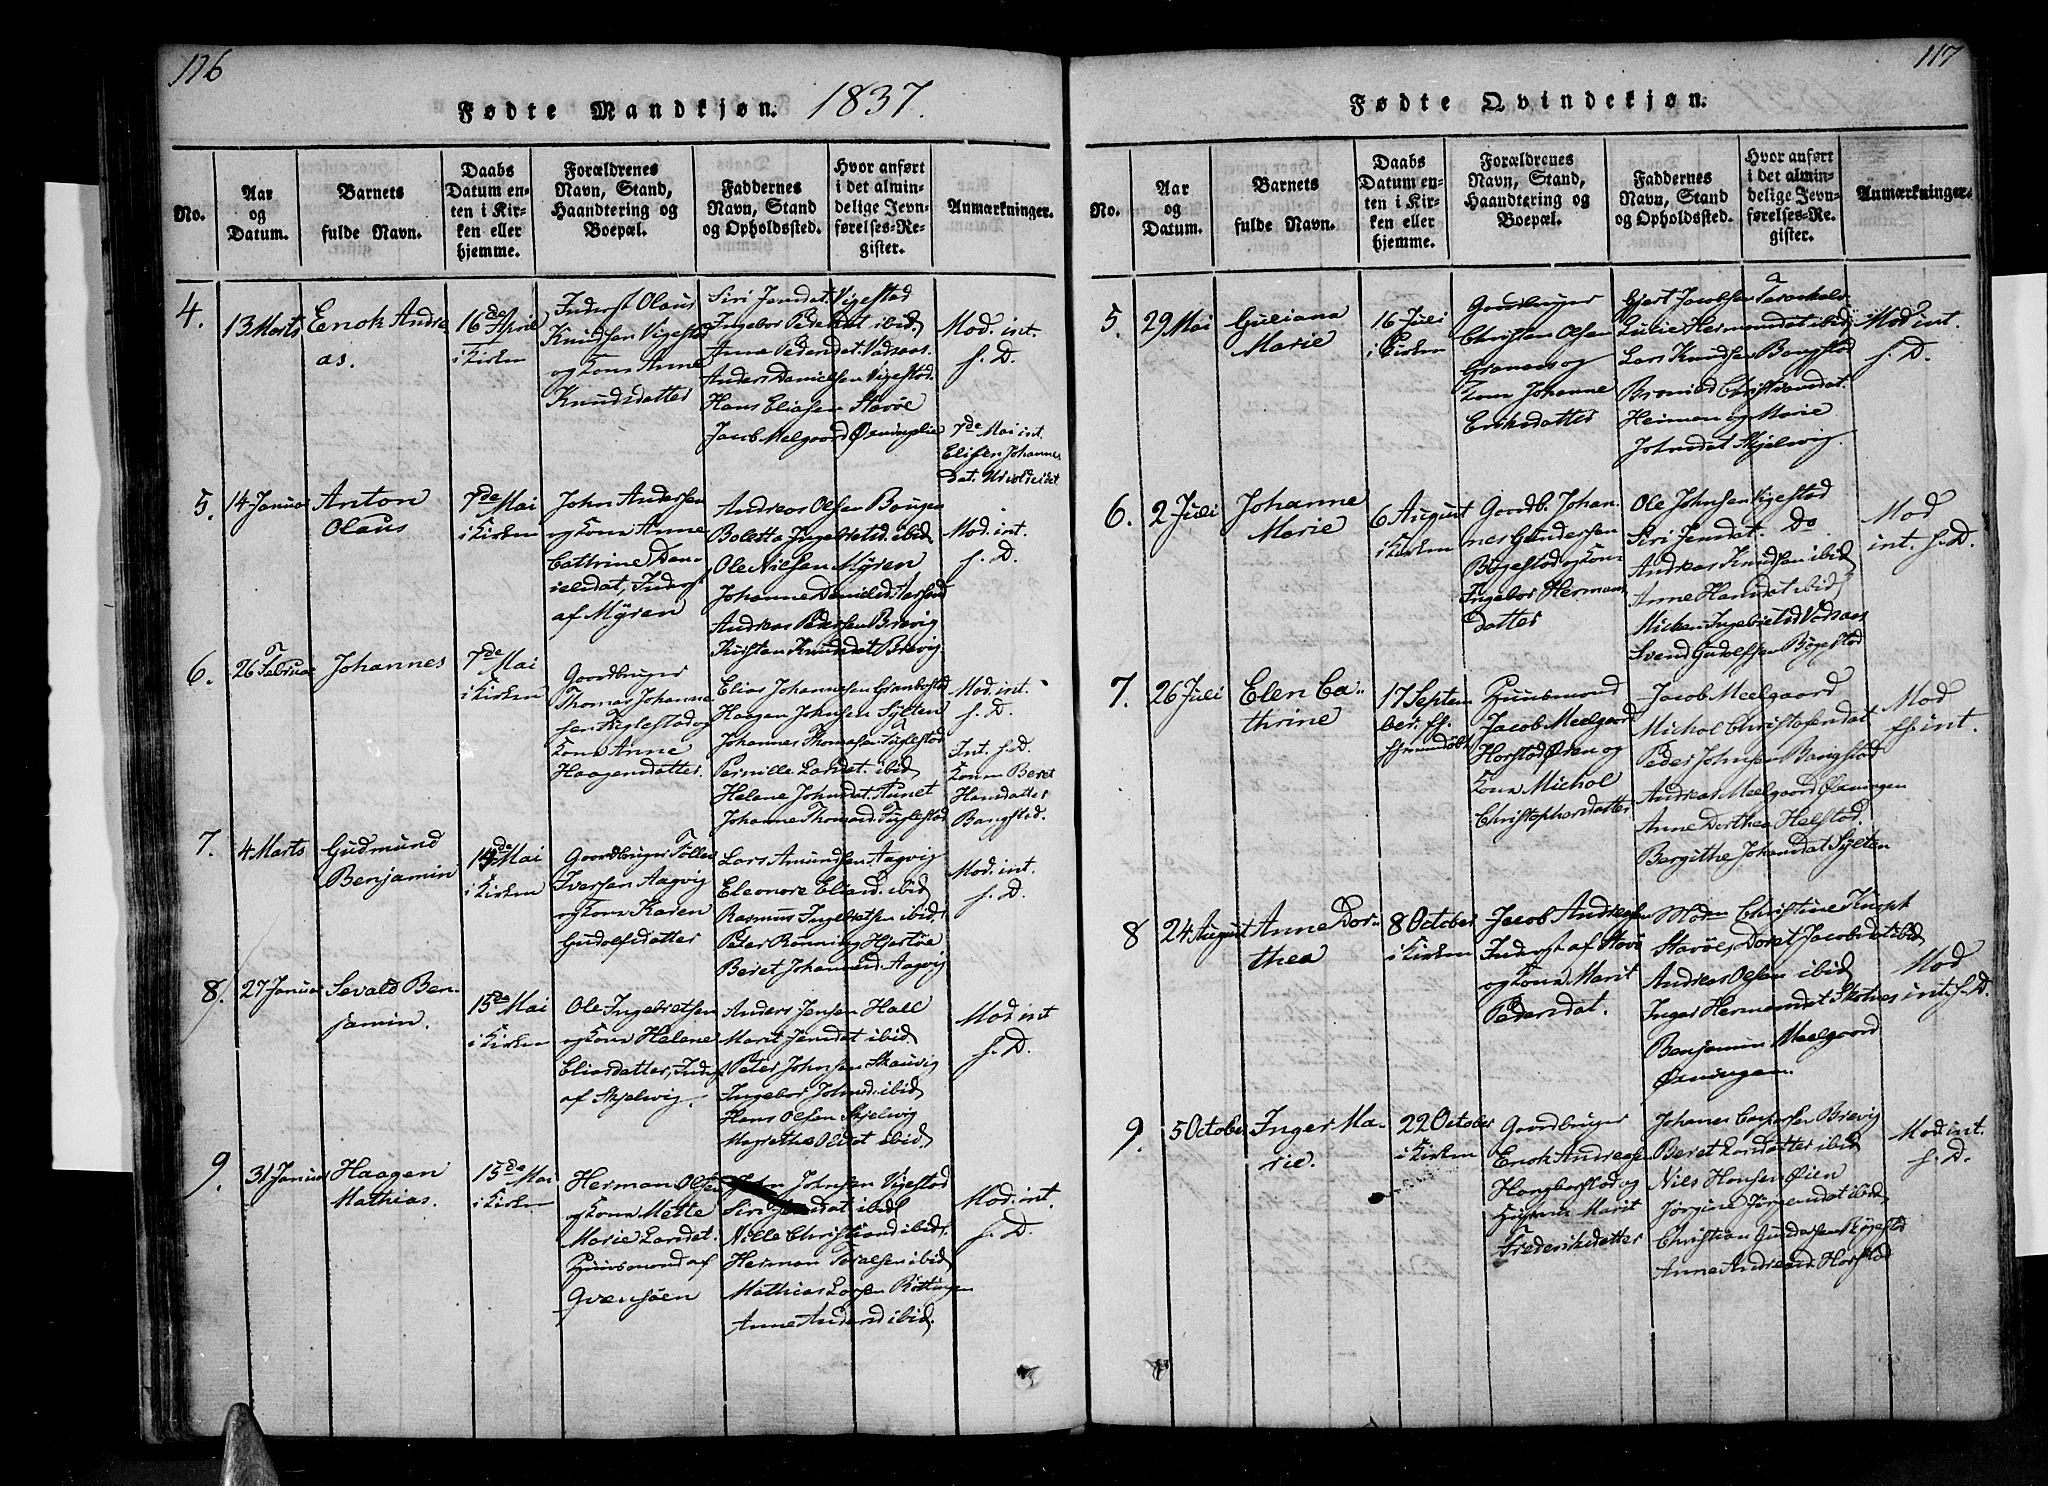 116
1837.
Fødte Mandkjøn.
No.
Aar
og
Datum.
Barnets
fulde Navn.
Daabs
Datum en-
ten i Kir-
ken eller
hjemme.
Forældrenes
Navn, Stand,
Haandtering og
Boepæl.
Faddernes
Navn, Stand
og Opholdssted.
Hvor anført
i det almin-
delige Jevn-
førelses-Re-
gister.
Anmærkninger.
4.
13 Marts
Enok Andre
as.
16de April
i Kirken
Inderst Olaus
Knudsen Vigestad
og Kone Anne
Knudsdatter
Siri Jensdat. Vigestad
Ingebor Pedersdat ibid,
Anne Pedersdat. Vadsaas.
Anders Danielsen Vigestad.
Hans Eliasen Stavøe
Jacob Meelgaard
Mod. int.
s. D.
7de Mai int.
Elisen Johannes
Dat.
5.
14 Januar
Anton
Olaus
7de Mai
i Kirken
John Andersen
og Kone Anne
Cathrine Dan-
ielsdat, Inderst
af Myren
Andreas Olsen
Boletta Ingebretsd. ibid
Ole Nielsen Myren
Johanne Danielsd.
Andreas Pedersen Brevig
Kirsten Knudsdat Brevig
Mod. int.
s. D.
6.
26 Februar
Johannes
7de Mai
i Kirken
Gaardbruger
Thomas Johanne
sen Fuglestad og
Kone Anne
Haagensdatter.
Elias Johannesen
Haagen Johnsen Sylten
Johannes Thomasen Fuglestad
Pernille Larsdat. ibid
Helene Johnsdat. Aunet
Johanne Thomasd. Fuglestad
Mod. int.
s. D.
Int. s. D.
Konen Beret
Hansdatter
Bangstad.
7.
4 Marts
Gudmund
Benjamin
14de Mai
i Kirken
Gaardbruger Tollef
Iversen Aagvig
og Kone Karen
Gudolfsdatter
Lars Amundsen Aagvig
Eleonore Eliasd. ibid
Rasmus Ingebretsen ibid,
Peter Rønning Hjertøe
Beret Johannesd. Aagvig
Mod. int.
s. D.
8.
27 Januar
Sevald Ben-
jamin.
15de Mai
i Kirken
Ole Ingebretsen
og Kone Helene
Eliasdatter, Inderst
af Skjelvig.
Anders Jensen Hall
Marit Jensdat ibid
Peter Johnsen Skauvig
Ingebor Johnsd. ibid
Hans Olsen Skjelvig
Magrethe Olsdat ibid,
Mod. int
s. D.
9.
31 Januar
Haagen
Mathias.
15de Mai
i Kirken
Herman Olsen
og Kone Mette
Marie Larsdat.
Huusmand af
Qvensøen
John Johnsen Vigestad
Siri Jensdat ibid
Nille Christiansd ibid,
Herman Toralsen ibid
Mathias Larsen Røttingen
Anne Andersd ibid.
Mod. int.
s. D.
117
Fødte Qvindekjøn.
No.
Aar
og
Datum.
Barnets
fulde Navn.
Daabs
Datum en-
ten i Kir-
ken eller
hjemme.
Forældrenes
Navn, Stand,
Haandtering og
Boepæl.
Faddernes
Navn, Stand
og Opholdssted.
Hvor anført
i det almin-
delige Jevn-
førelses-Re-
gister.
Anmærkninger.
5.
29 Mai
Guliana
Marie
16 Juli
i Kirken
Gaardbruger
Christen Olsen
Granaas og
Kone Johanne
Eriksdatter
Gjert Jacobsen
Lucie Hermansdat ibid,
Lars Knudsen Bangstad
Christiansdat.
Heiman og Marie
Johnsdat Skjelvig.
Mod int.
s. D.
6.
2 Juli
Johanne
Marie
6 August
i Kirken
Gaardb. Johan
nes Gundersen
Bøgestad og Kone
Ingebor Hermans
datter
Ole Johnsen Vigestad
Siri Jensdat. Do
Andreas Knudsen ibid
Anne Hansdat ibid
Ingebretsd Vadsaas
Svend Gudolfsen Bøgestad
Mod
int. s. D.
7.
26 Juli
Elen Ca-
thrine
17 Septem
ber
Huusmand
Jacob Meelgaard
Horstad Øren og
Kone Michol
Christophersdatter
Jacob Meelgaard
Michol Christofersdat
Peder Johnsen Bangstad
Andreas Meelgaard Øxningen
Anne Dorthea Helstad.
Bergithe Johansdat Sylten
Mod
int.
8
24 August
Anne Dor-
thea
8 October
i Kirken
Jacob Andreasen
Inderst af Stavøe
og Kone Marit
Pedersdat.
Madm Christine Knoph
Stavøe, Doret Jacobsdat ibid
Andreas Olsen ibid
Inger Hermansdat Skotnes
Benjamin Meelgaard
Øxningen.
Mod
int. s. D.
9.
5 October
Inger Ma-
rie.
22 October
i Kirken
Gaardbruger
Enok Andreasen
Hongberstad og
Hustrue Marit
Frederiksdatter
Johanes Caspersen Brevig
Beret Larsdatter ibid
Niels Hansen Øien
Jørgine Jørgensdat ibid,
Christian Gundersen Bøgestad
Anne Andreasd. Horstad
Mod int.
s. D.